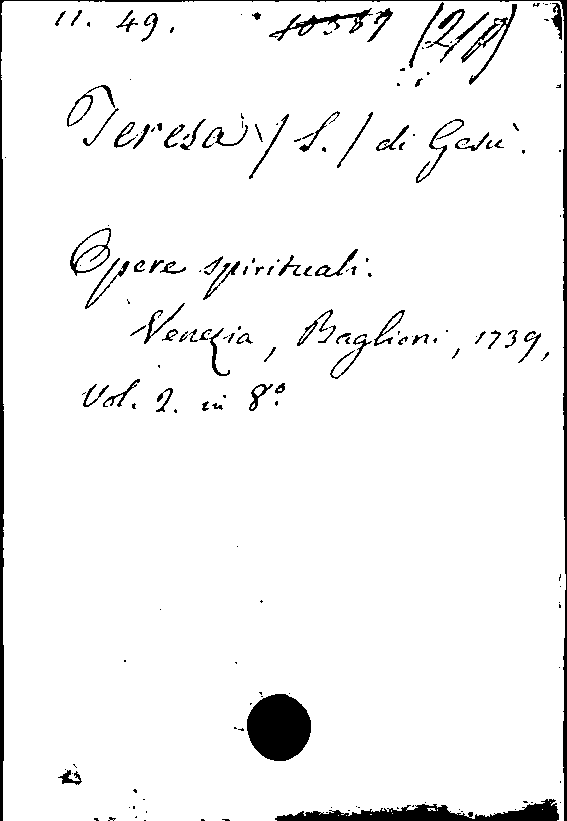 11. 49. 10389 (2/P)
Teresa / S. / di Gesù.
Opere spirituali.
Venezia, Baglioni, 1739,
Vol. 2. in 8º.